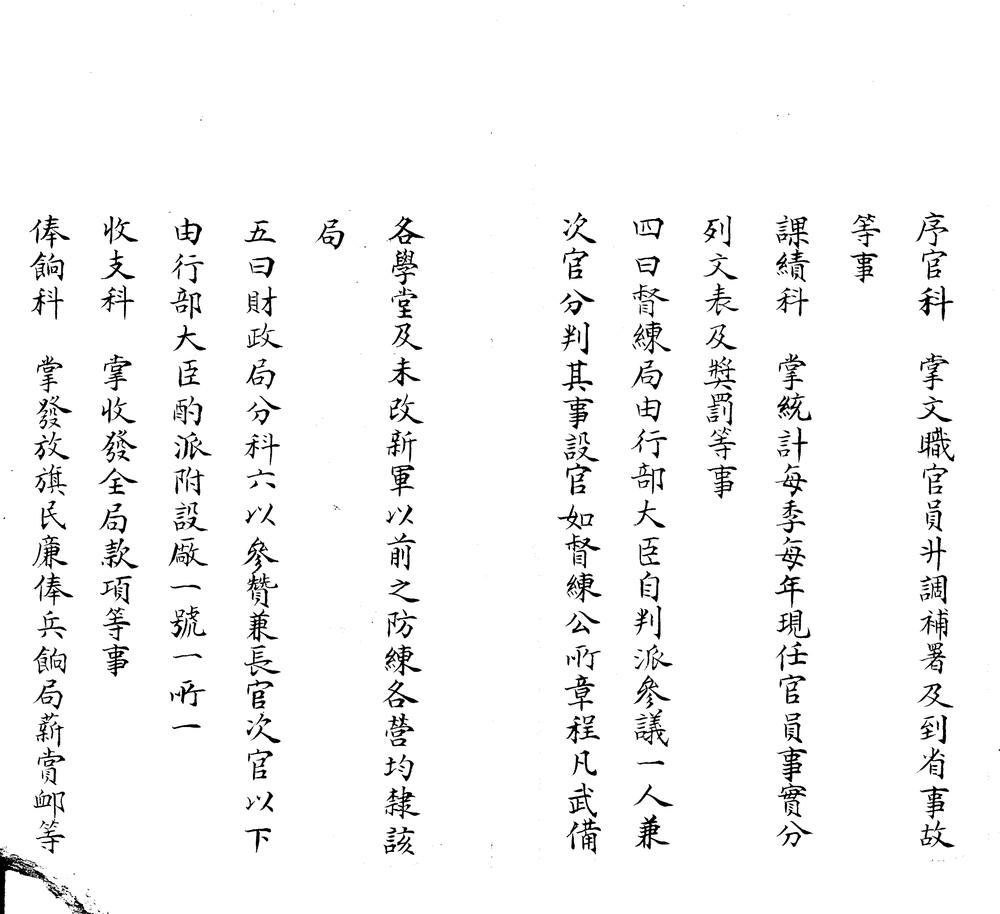 序官科　掌文職官員升調補署及到省事故
等事
課績科　掌統計每季每年現任官員事實分
列文表及獎罰等事
四曰督練局由行部大臣自判派參議一人兼
次官分判其事設官如督練公所章程凡武備
各學堂及未改新軍以前之防練各營均隸該
局
五曰財政局分科六以參贊兼長官次官以下
由行部大臣酌派附設廠一號一所一
收支科　掌收發全局款項等事
俸餉科　掌發放旗民廉俸兵餉局薪賞卹等